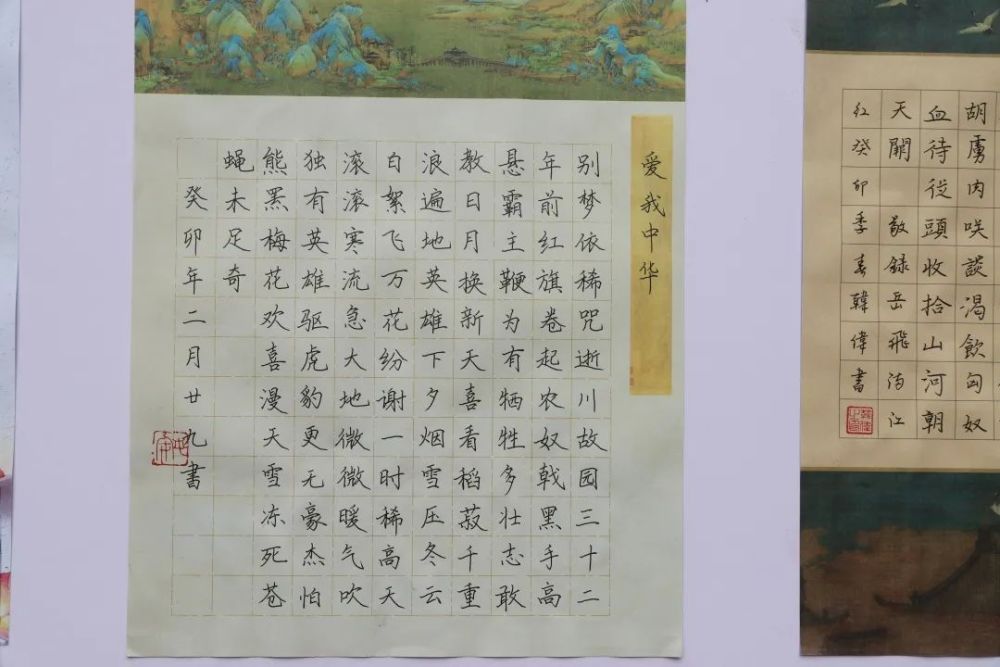 爱我中华
别梦依稀咒逝川故园三十二
年前红旗卷起农奴戟黑手高
悬霸主鞭为有牺牲多壮志敢
教日月换新天喜看稻菽千重
浪遍地英雄下夕烟雪压冬云
白絮飞万花纷谢一时稀高天
滚滚寒流急大地微微暖气吹
独有英雄驱虎豹更无豪杰怕
熊罴梅花欢喜漫天雪冻死苍
蝇未足奇
癸卯年二月廿九書
胡虜肉咲談渴飲匈奴
血待從頭收拾山河朝
天闕敬録岳飛满江
红癸卯季春韓偉書